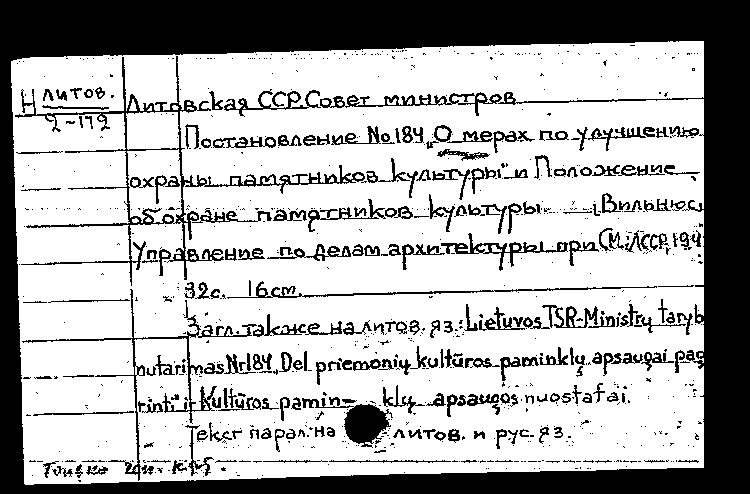 Н литов. 2-172
Литовская ССР. Совет министров
Постановление №184 „О мерах по улучшению
охраны памятников культуры" и Положение
об охране памятников культуры. Вильнюс,
Управление по делам архитектуры при СМ ЛССР, 194
32с. 16см.
Загл. также на литов. яз.: Lietuvos TSR Ministrų taryb
nutarimas Nr184 „Dėl priemonių kultūros paminklų apsaugai pag
rinti" ir Kultūros pamin- klų apsaugos nuostatai.
Текст парал. на литов. и рус. яз.